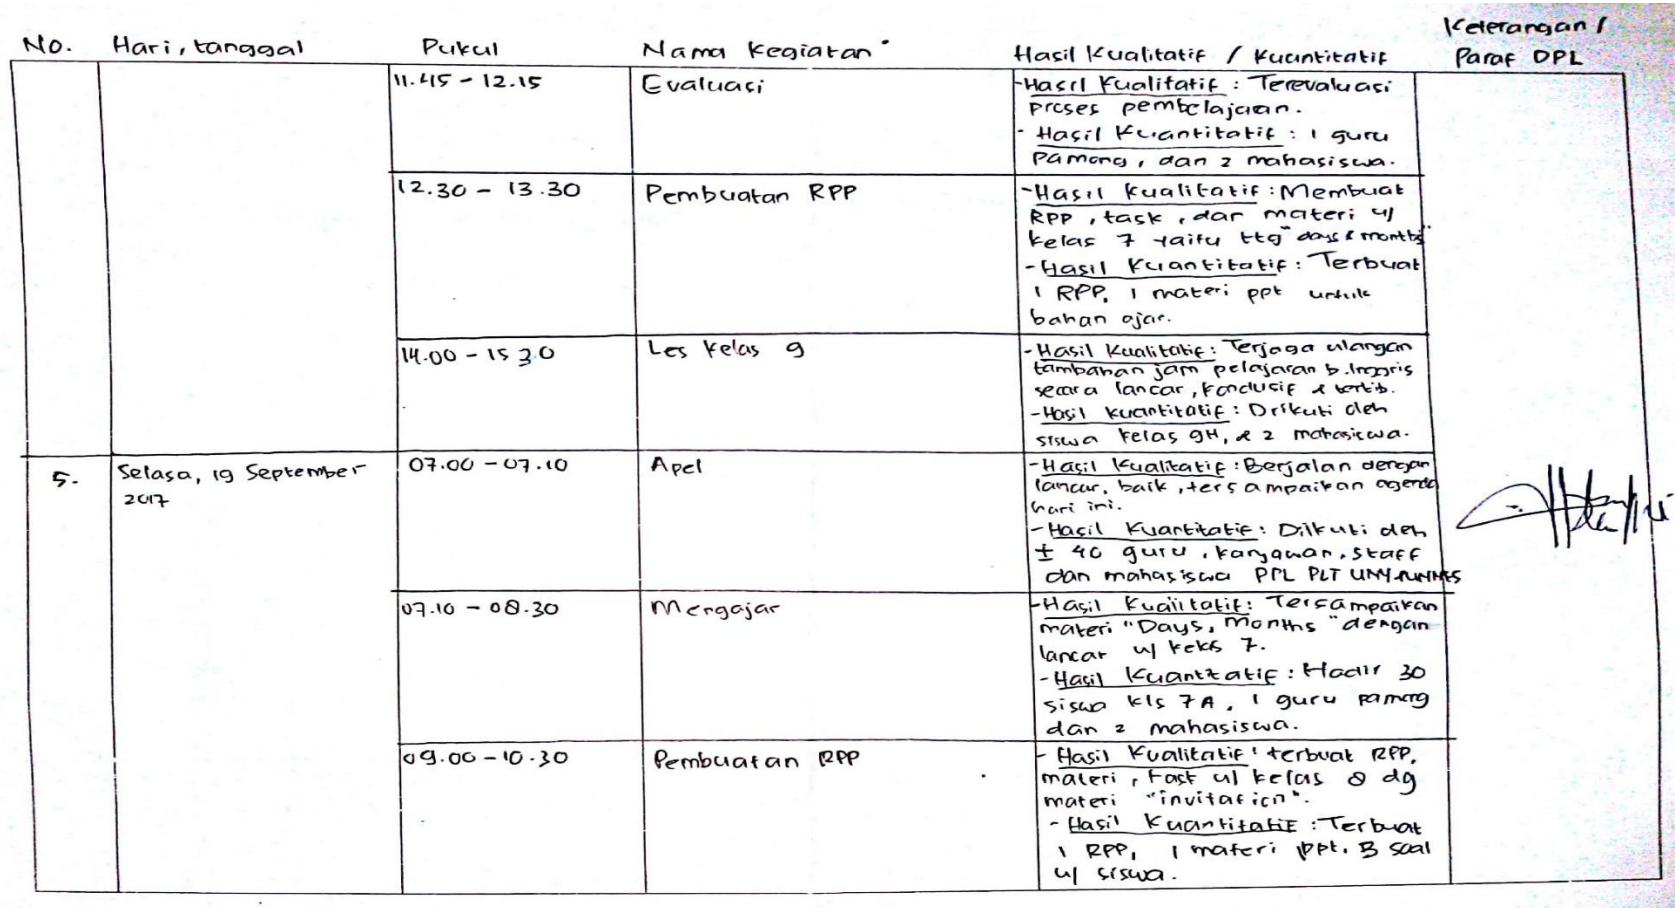 No. Hari, tanggal Pukul Nama Kegiatan Hasil Kualitatif / Kuantitatif Keterangan / Paraf DPL
11.45 - 12.15 Evaluasi
- Hasil Kualitatif : Terevaluasi
proses pembelajaran.
- Hasil Kuantitatif : 1 guru
pamong, dan 2 mahasiswa.
12.30 - 13.30 Pembuatan RPP
- Hasil Kualitatif : Membuat
RPP, task, dan materi u/
kelas 7 yaitu ttg "days & months"
- Hasil Kuantitatif : Terbuat
1 RPP, 1 materi ppt untuk
bahan ajar.
14.00 - 15 30 Les Kelas 9
- Hasil Kualitatif : Terjaga ulangan
tambahan jam pelajaran b. Inggris
secara lancar, kondusif & tertib.
- Hasil Kuantitatif : Diikuti oleh
siswa kelas 9H, & 2 mahasiswa.
5. Selasa, 19 September
2017
07.00 - 07.10 Apel
- Hasil Kualitatif : Berjalan dengan
lancar, baik, tersampaikan agenda
hari ini.
- Hasil Kuantitatif : Diikuti oleh
± 40 guru, karyawan, staff
dan mahasiswa PPL PLT UNY
07.10 - 08.30 Mengajar
- Hasil Kualitatif : Tersampaikan
materi "Days, Months" dengan
lancar u/ kelas 7.
- Hasil Kuantitatif : Hadir 30
siswa kls 7A, 1 guru pamong
dan 2 mahasiswa.
09.00 - 10.30 Pembuatan RPP
- Hasil Kualitatif : terbuat RPP,
materi, task u/ kelas 8 dg
materi "invitation".
- Hasil Kuantitatif : Terbuat
1 RPP, 1 materi ppt. soal
u/ siswa.